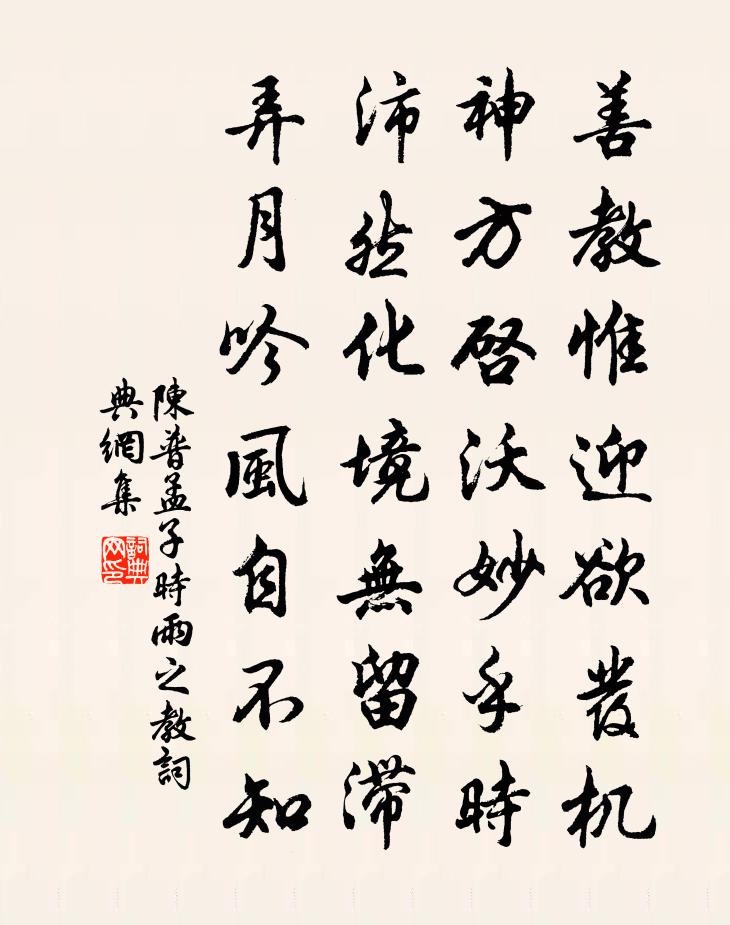 善教惟迎欲發机
神方啓沃妙乎時
沛然化境無留滯
弄月吟風自不知
陳普孟子時雨之教詞
典網集
詞典
网印